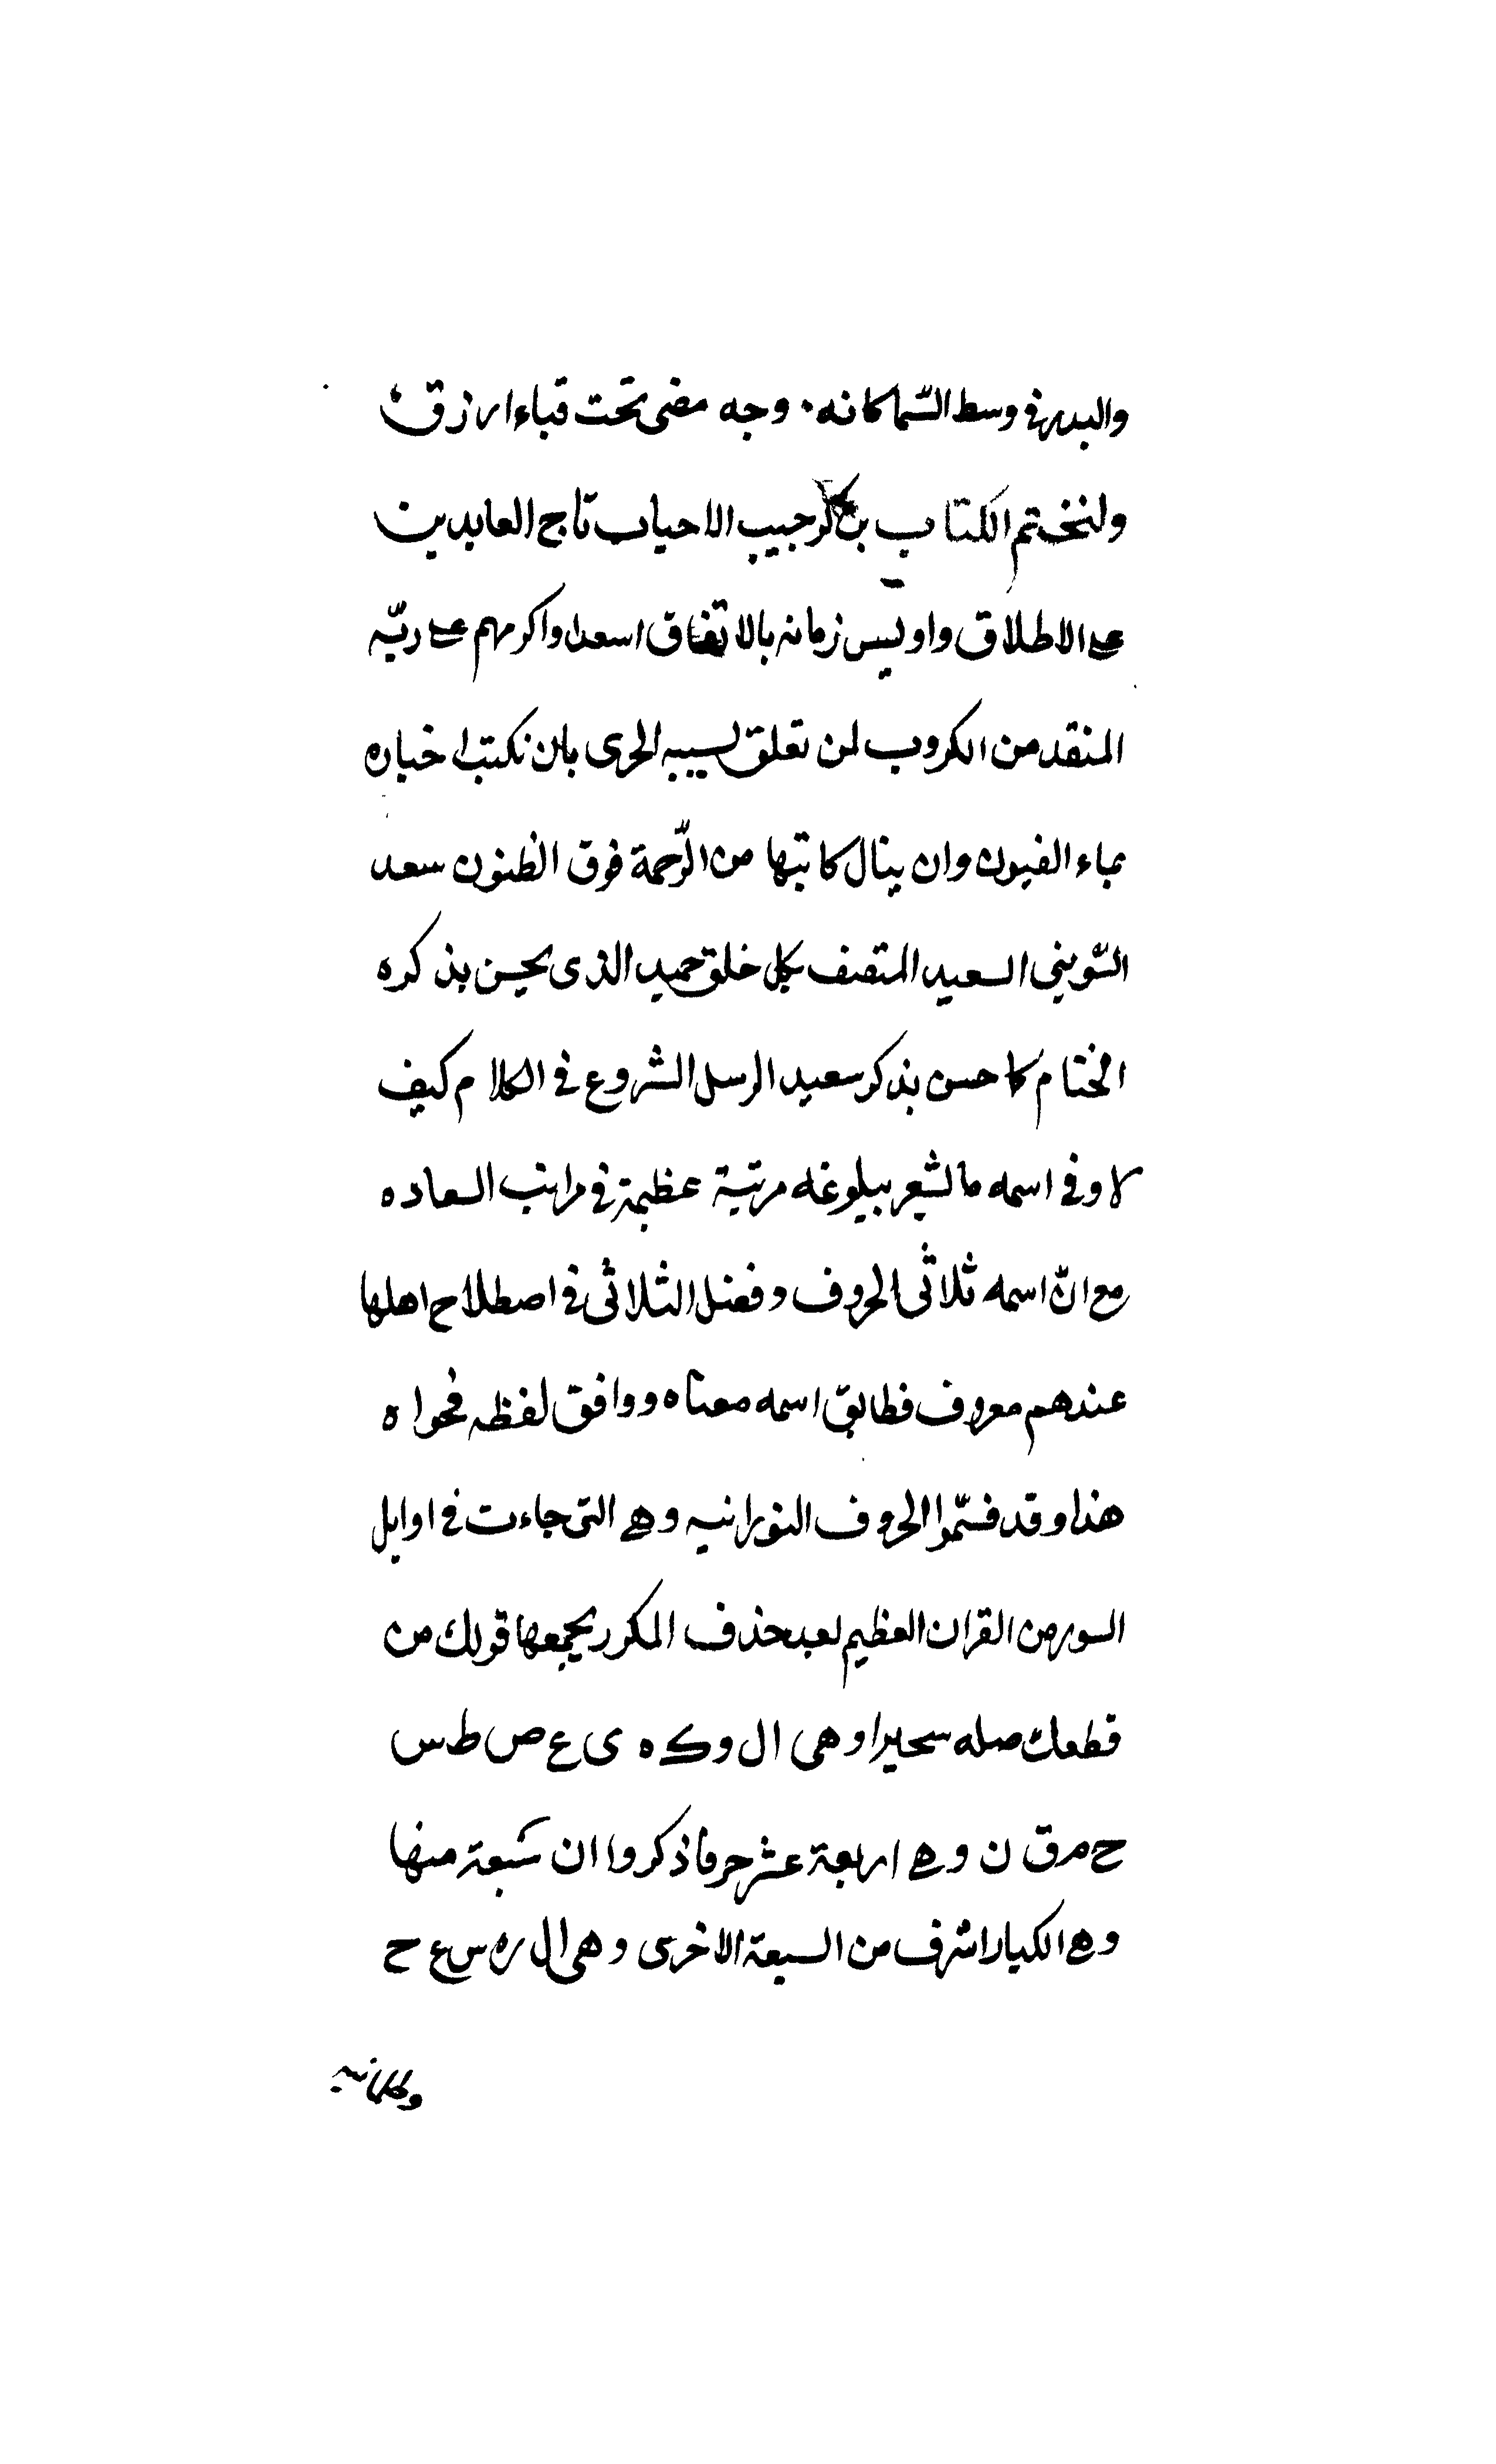 والبدر في وسط السّما كانه . وجه مضى تحت قباء ازرق
ولنختم الكتاب بذكر حبيب الاحباب تاج العابدين
على الاطلاق واويس زمانه بالاتفاق اسعد واكرمهم على ربّه
المنقد من الكروب لمن تعلق بسببه الحرى بان نكتب اخباره
بماء العيون وان ينال كاتبها من الرّحمة فوق الظنون سعد
السّوينى السعيد المتصف بكل خلق حميد الذى يحسن بذكره
الختام كما حسن بذكر سعيد الرسل الشروع في الكلام كيف
لا وفي اسمه ما يشعر ببلوغه مرتبة عظيمة في مراتب السعاده
مع انّ اسمه ثلاثى الحروف وفضل الثلاثى في اصطلاح اهلها
عندهم معروف فطابق اسمه معناه ووافق لفظه فحواه
هذا وقد قسّموا الحروف النورانيه وهي التى جاءت في اوايل
السور من القران العظيم بعد حذف المكرر يجمعها قولك من
قطعك صله سحيرا وهى ال ر ك ه ى ع ص ط س
ح م ق ن وهي اربعة عشر حرفا ذكروا ان سبعة منها
وهي الكبار اشرف من السبعة الاخرى وهى ال ر ه س ع ح